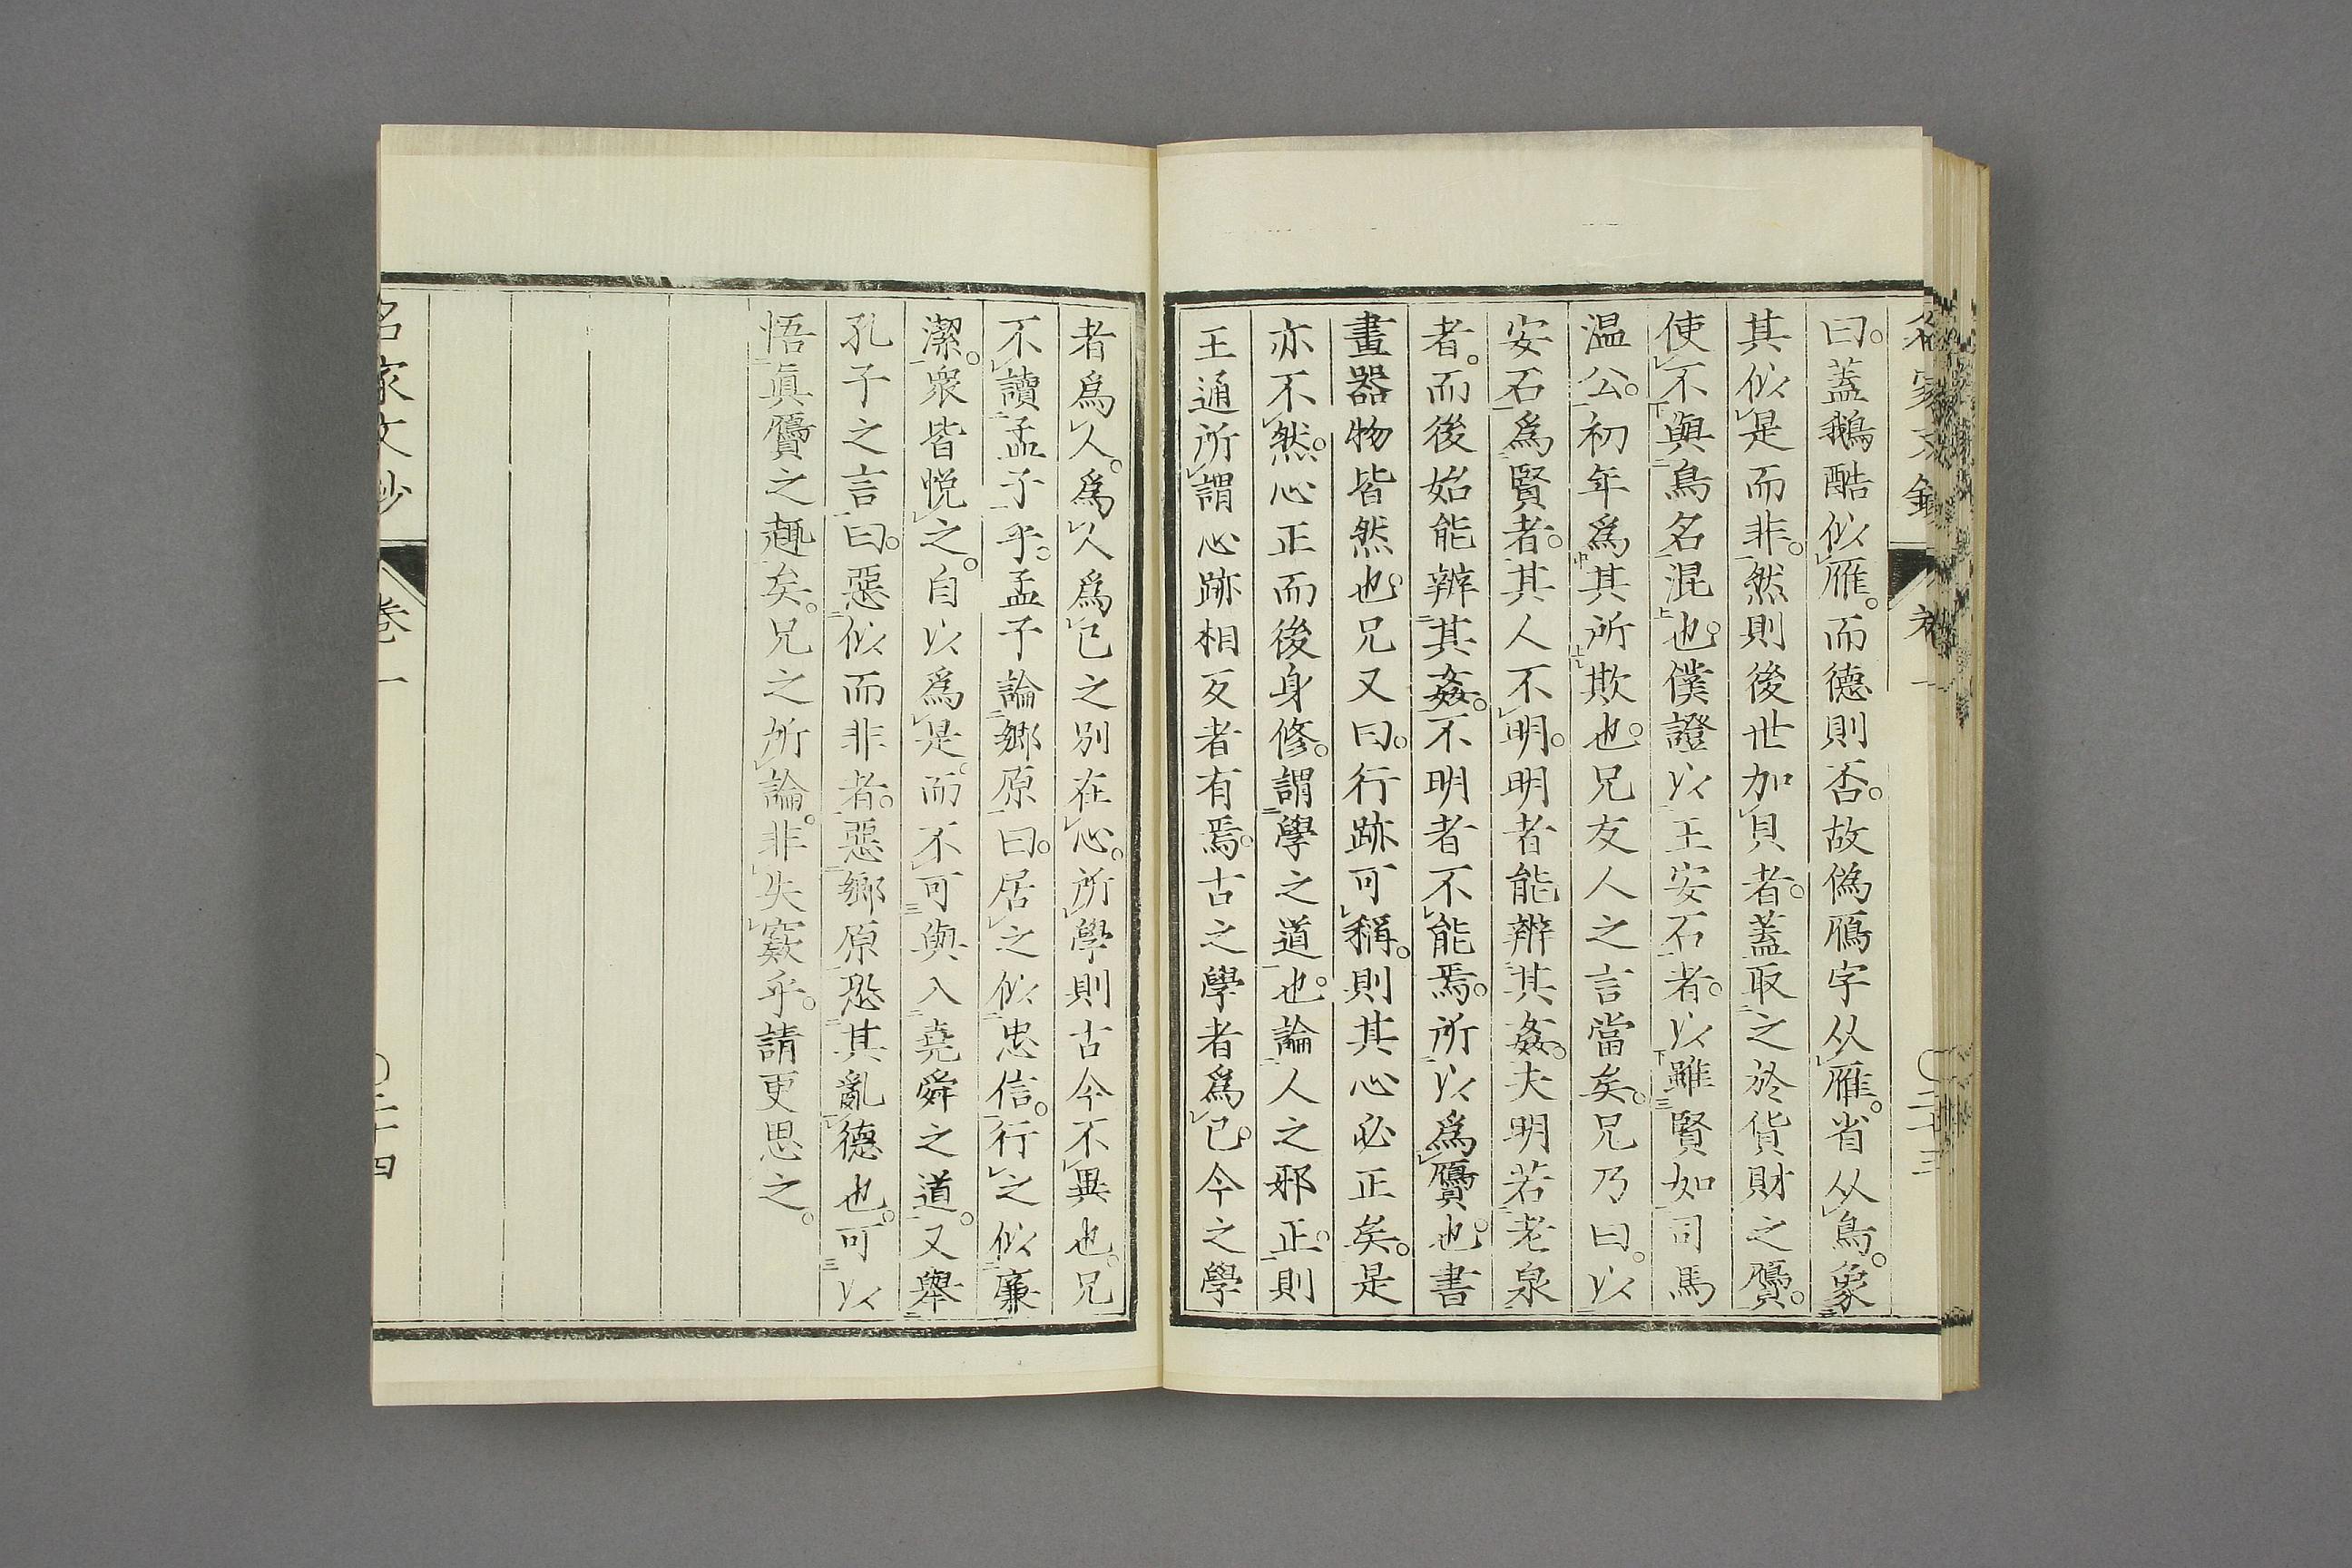 曰。蓋鵝酷似雁。而德則否。故僞鴈字从雁。省从鳥。象
其似是而非。然則後世加貝者。蓋取之於貨財之贗。
使不與鳥名混也。僕證以王安石者。以雖賢如司馬
温公。初年爲其所欺也。兄友人之言當矣。兄乃曰。以
安石爲賢者。其人不明。明者能辨其姦。夫明若老泉
者。而後始能辨其姦。不明者不能能焉。所以爲贗也。書
畫器物皆然也。兄又曰。行跡可稱。則其心必正矣。是
亦不然。心正而後身修。謂學之道也。論人之邪正。則
王通所謂心跡相反者有焉。古之學者爲已。今之學
者爲人。爲人爲已之別在心。所學則古今不異也。兄
不讀孟子乎。孟子論鄉原曰。居之似忠信。行之似廉
潔。衆皆悅之。自以爲是。而不可與入堯舜之道。又舉
孔子之言曰。惡似而非者。惡鄉原恐其亂德也。可以
悟眞贗之趣矣。兄之所論。非失竅乎。請更思之。
名家文抄
卷一
〇二十四